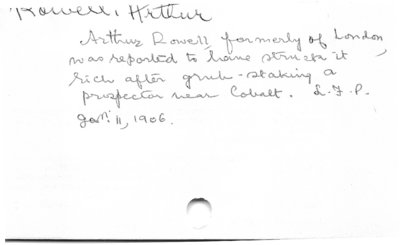 Rowell, Arthur
Arthur Rowell formerly of London,
was reported to have struck it
rich after grub-staking a
prospector near Cobalt. L.F.P.
Jan. 11, 1906.